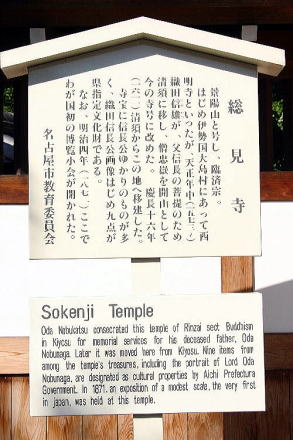 総見寺
景陽山と号し、臨済宗。
はじめ伊勢国大島村にあって西
明寺といったが、天正年中(一五七三)
織田信雄が、父信長の菩提のため
清須に移し、僧忠嶽を開山として
今の寺号に改めた。慶長十六年
(一六一一)清須からこの地へ移建した。
寺宝に信長公ゆかりのものが多
く、織田信長公画像はじめ九点が
県指定文化財である。
なお、明治四年(一八七一)ここで
わが国初の博覧小会が開かれた。
名古屋市教育委員会
Sokenji Temple
Oda Nobukatsu consecrated this temple of Rinzai sect Buddhism
in Kiyosu for memorial services for his deceased father, Oda
Nobunaga. Later it was moved here from Kiyosu. Nine items from
among the temple's treasures, including the portrait of Lord Oda
Nobunaga, are designated as cultural properties by Aichi Prefectura
Government. In 1871, an exposition of a modest scale, the very first
in japan, was held at this temple.